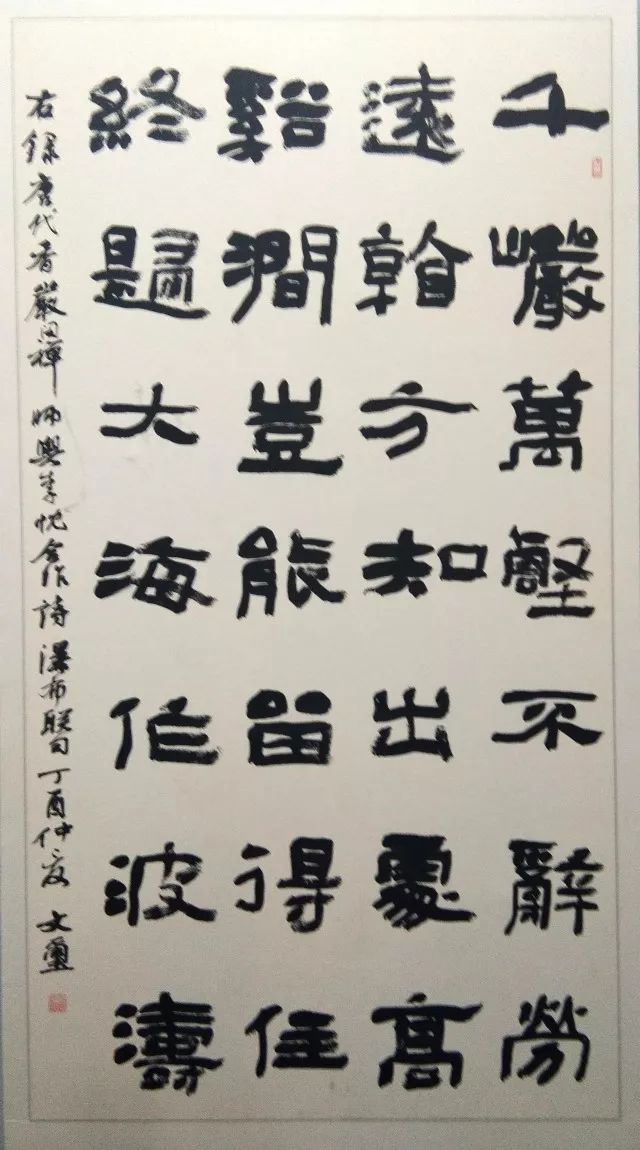 千巖萬壑不辭勞
遠看方知出處高
谿澗豈能留得住
終歸大海作波濤
右錄唐代香嚴閑禪師與李忱合作詩瀑布聯句丁酉仲夏文璽